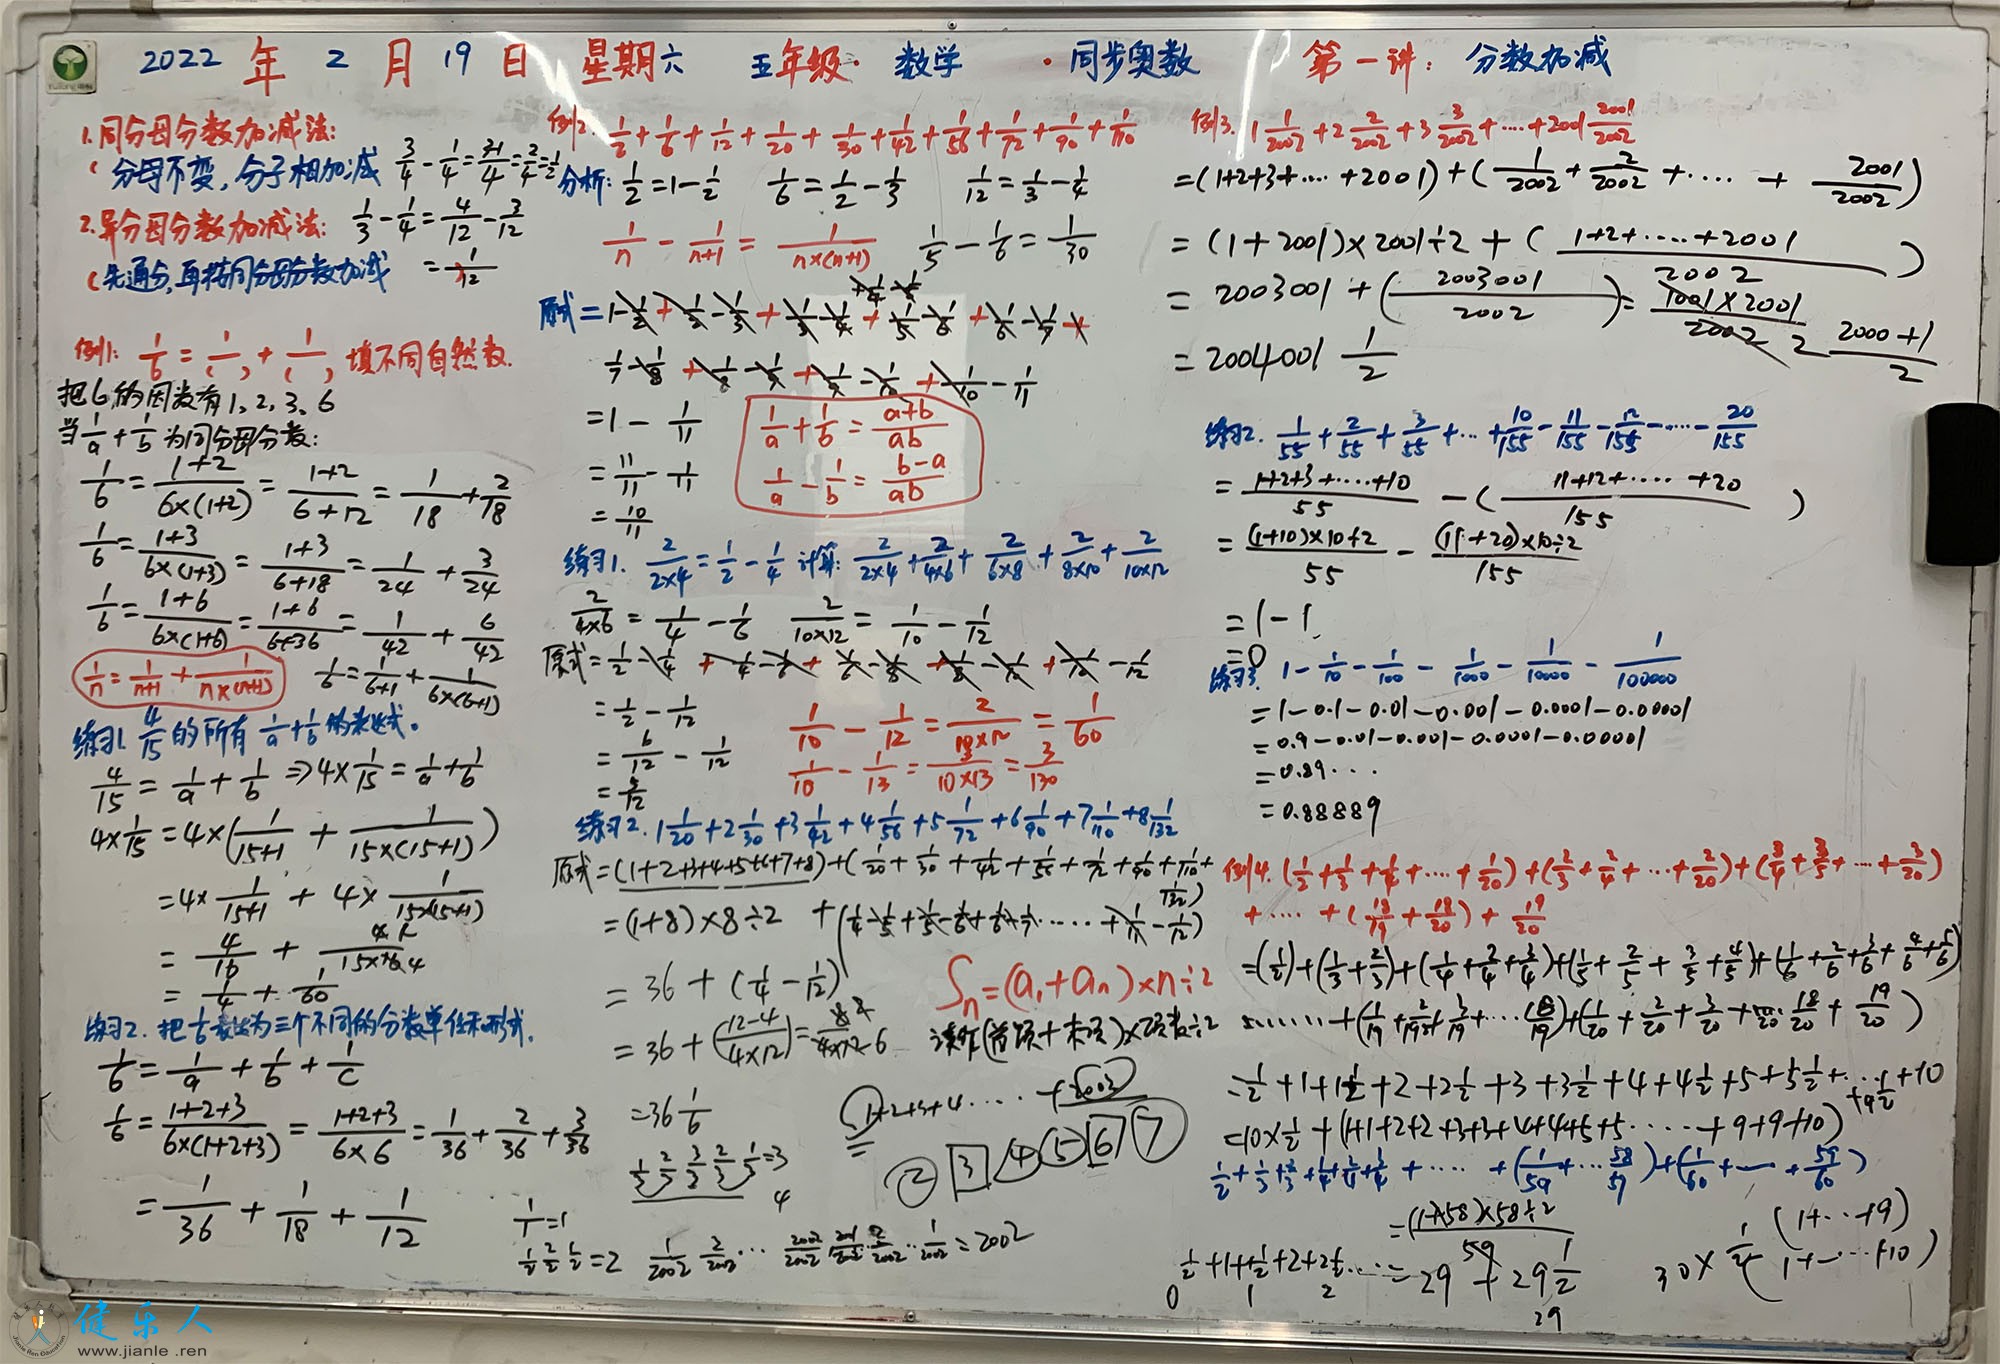 2022年2月19日 星期六 五年级·数学 ·同步奥数 第一讲：分数加减
1.同分母分数加减法:
分母不变，分子相加减 3/4-1/4=3-1/4=2/4=1/2
2.异分母分数加减法: 1/3-1/4=4/12-3/12
(先通分,再按同分母分数加减 =1/12
例1: 1/6=1/( )+1/( ) 填不同自然数.
把6的因数有1、2、3、6
当1/a+1/b为同分母分数:
1/6=1+2/6×(1+2)=1+2/6+12=1/18+2/18
1/6=1+3/6×(1+3)=1+3/6+18=1/24+3/24
1/6=1+6/6×(1+6)=1+6/6+36=1/42+6/42
1/n=1/n+1+1/n×(n+1) 1/6=1/6+1+1/6×(6+1)
练习1. 4/15的所有1/a+1/b的表达式。
4/15=1/a+1/b⇒4×1/15=1/a+1/b
4×1/15=4×(1/15+1+1/15×(15+1))
=4×1/15+1+4×1/15×(15+1)
=4/16+4/15×16
=1/4+1/60
练习2. 把1/6表达为三个不同的分数单位和形式.
1/6=1/a+1/b+1/c
1/6=1+2+3/6×(1+2+3)=1+2+3/6×6=1/36+2/36+3/36
=1/36+1/18+1/12
例2. 1/2+1/6+1/12+1/20+1/30+1/42+1/56+1/72+1/90+1/110
分析: 1/2=1-1/2 1/6=1/2-1/3 1/12=1/3-1/4
1/n-1/n+1=1/n×(n+1) 1/5-1/6=1/30
+1/4-1/5
原式=1-1/2+1/2-1/3+1/3-1/4+1/5-1/6+1/6-1/7+
1/7-1/8+1/8-1/9+1/9-1/10+1/10-1/11
=1-1/11
=11/11-1/11
=10/11
1/a+1/b=a+b/ab
1/a-1/b=b-a/ab
练习1. 2/2×4=1/2-1/4 计算: 2/2×4+2/4×6+2/6×8+2/8×10+2/10×12
2/4×6=1/4-1/6 2/10×12=1/10-1/12
原式=1/2-1/4+1/4-1/6+1/6-1/8+1/8-1/10+1/10-1/12
=1/2-1/12
=6/12-1/12
=5/12
1/10-1/12=2/10×12=1/60
1/10-1/13=3/10×13=3/130
练习2. 1 1/20+2 1/30+3 1/42+4 1/56+5 1/72+6 1/90+7 1/110+8 1/132
原式=(1+2+3+4+5+6+7+8)+(1/20+1/30+1/42+1/56+1/72+1/90+1/110+
1/132)
=(1+8)×8÷2+(1/4-1/5+1/5-1/6+1/6+······+1/11-1/12)
=36+(1/4-1/12)
=36+(12-4/4×12)=8/4×12 6
=36 1/6
Sn=(a1+an)×n÷2
读作(首项+末项)×项数÷2
1+2+3+4·····+2003
② 3 4 5 6 7
1/1=1
=2
=3
4
1/2002 2/2002 ··· 2002/2002 2001/2002 ·· 2/2002 ·· 1/2002=2002
例3. 1 1/2002+2 2/2002+3 3/2002+····+2001 2001/2002
=(1+2+3+····+2001)+(1/2002+2/2002+····+2001/2002)
=(1+2001)×2001÷2+(1+2+····+2001/2002)
=2003001+(2003001/2002)=1001×2001/2002 2 2000+1/2
=2004001 1/2
练习2. 1/55+2/55+3/55+···+10/155-11/155-12/155-···-20/155
=1+2+3+····+10/55-(11+12+····+20/155)
=(1+10)×10÷2/55-(11+20)×10÷2/155
=1-1
=0
练习3. 1-1/10-1/100-1/1000-1/10000-1/100000
=1-0.1-0.01-0.001-0.0001-0.00001
=0.9-0.01-0.001-0.0001-0.00001
=0.89···
=0.88889
例4. (1/2+1/3+1/4+····+1/20)+(2/3+2/4+···+2/20)+(3/4+3/5+···+3/20)
+····+(18/19+18/20)+19/20
=(1/2)+(1/3+2/3)+(1/4+2/4+3/4)+(1/5+2/5+3/5+4/5)+(1/6+2/6+3/6+4/6+5/6)
·······+(1/19+2/19+3/19+···18/19)+(1/20+2/20+3/20+···18/20+19/20)
=1/2+1+1 1/2+2+2 1/2+3+3 1/2+4+4 1/2+5+5 1/2+···+9 1/2+10
=10×1/2+(1+1+2+2+3+3+4+4+5+5·····+9+9+10)
1/2+1/3+2/3+1/4+2/4+3/4+····+(1/59+···58/59)+(1/60+—+59/60)
=(1+58)×58÷2/59
1/2+1+1 1/2+2+2 1/2···· =29+29 1/2
0 1 2 29
30×1/2 (1+··+9)
(1+···+10)
健乐人
www.jianle .ren